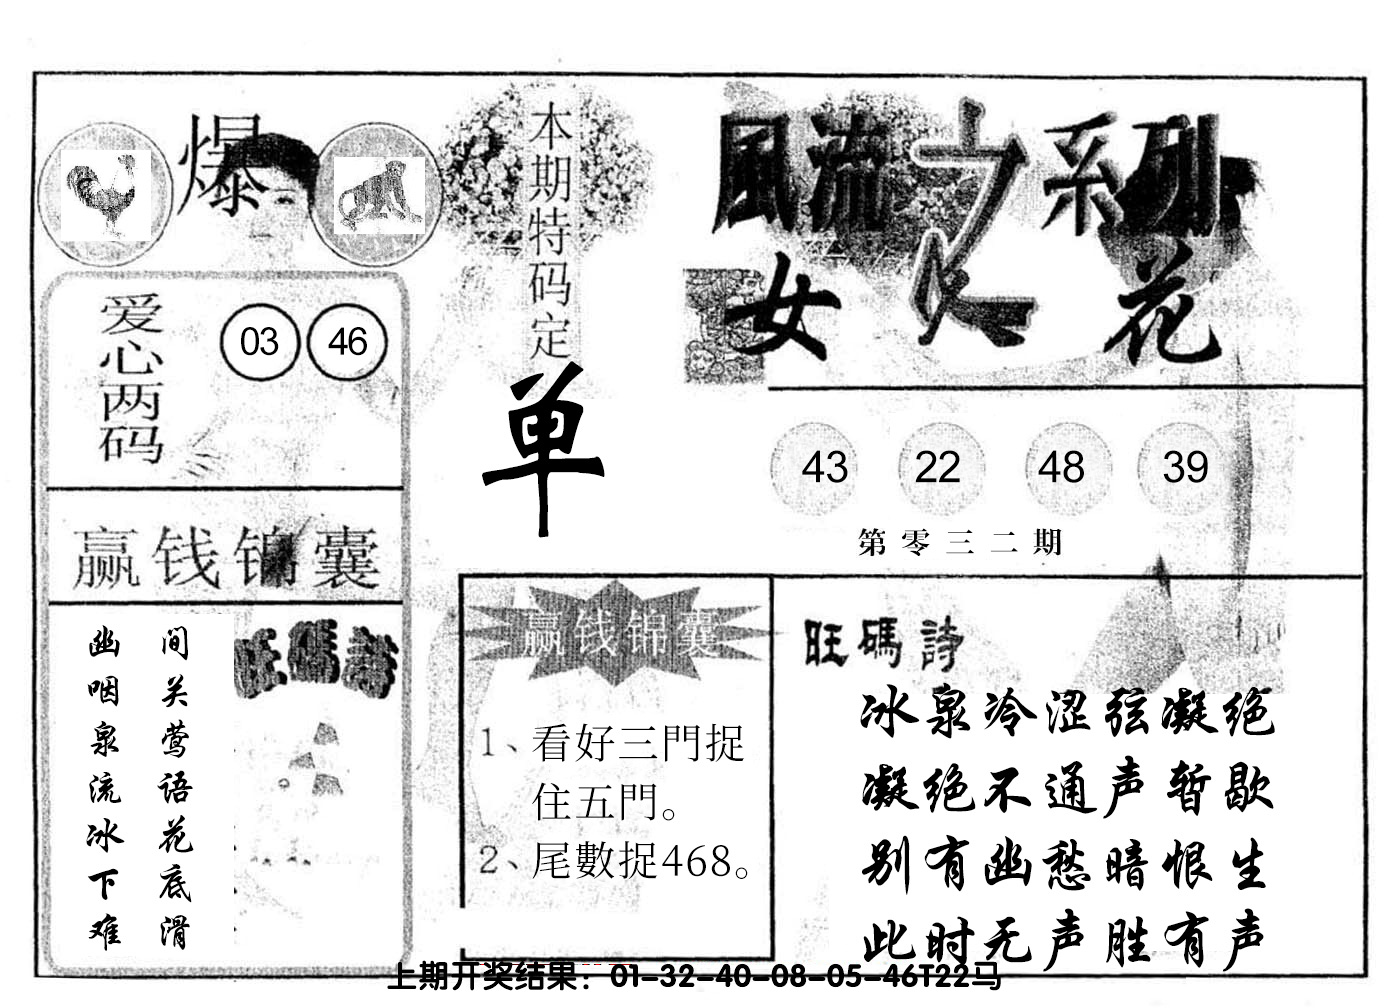 爆
爱心两码
03 46
赢钱锦囊
间关莺语花底滑
幽咽泉流冰下难
旺碼詩
本期特码定
单
赢钱锦囊
1、看好三門捉
住五門。
2、尾數捉468。
風流之系列
女人花
43 22 48 39
第零三二期
旺碼詩
冰泉冷涩弦凝绝
凝绝不通声暂歇
别有幽愁暗恨生
此时无声胜有声
上期开奖结果：01-32-40-08-05-46T22马